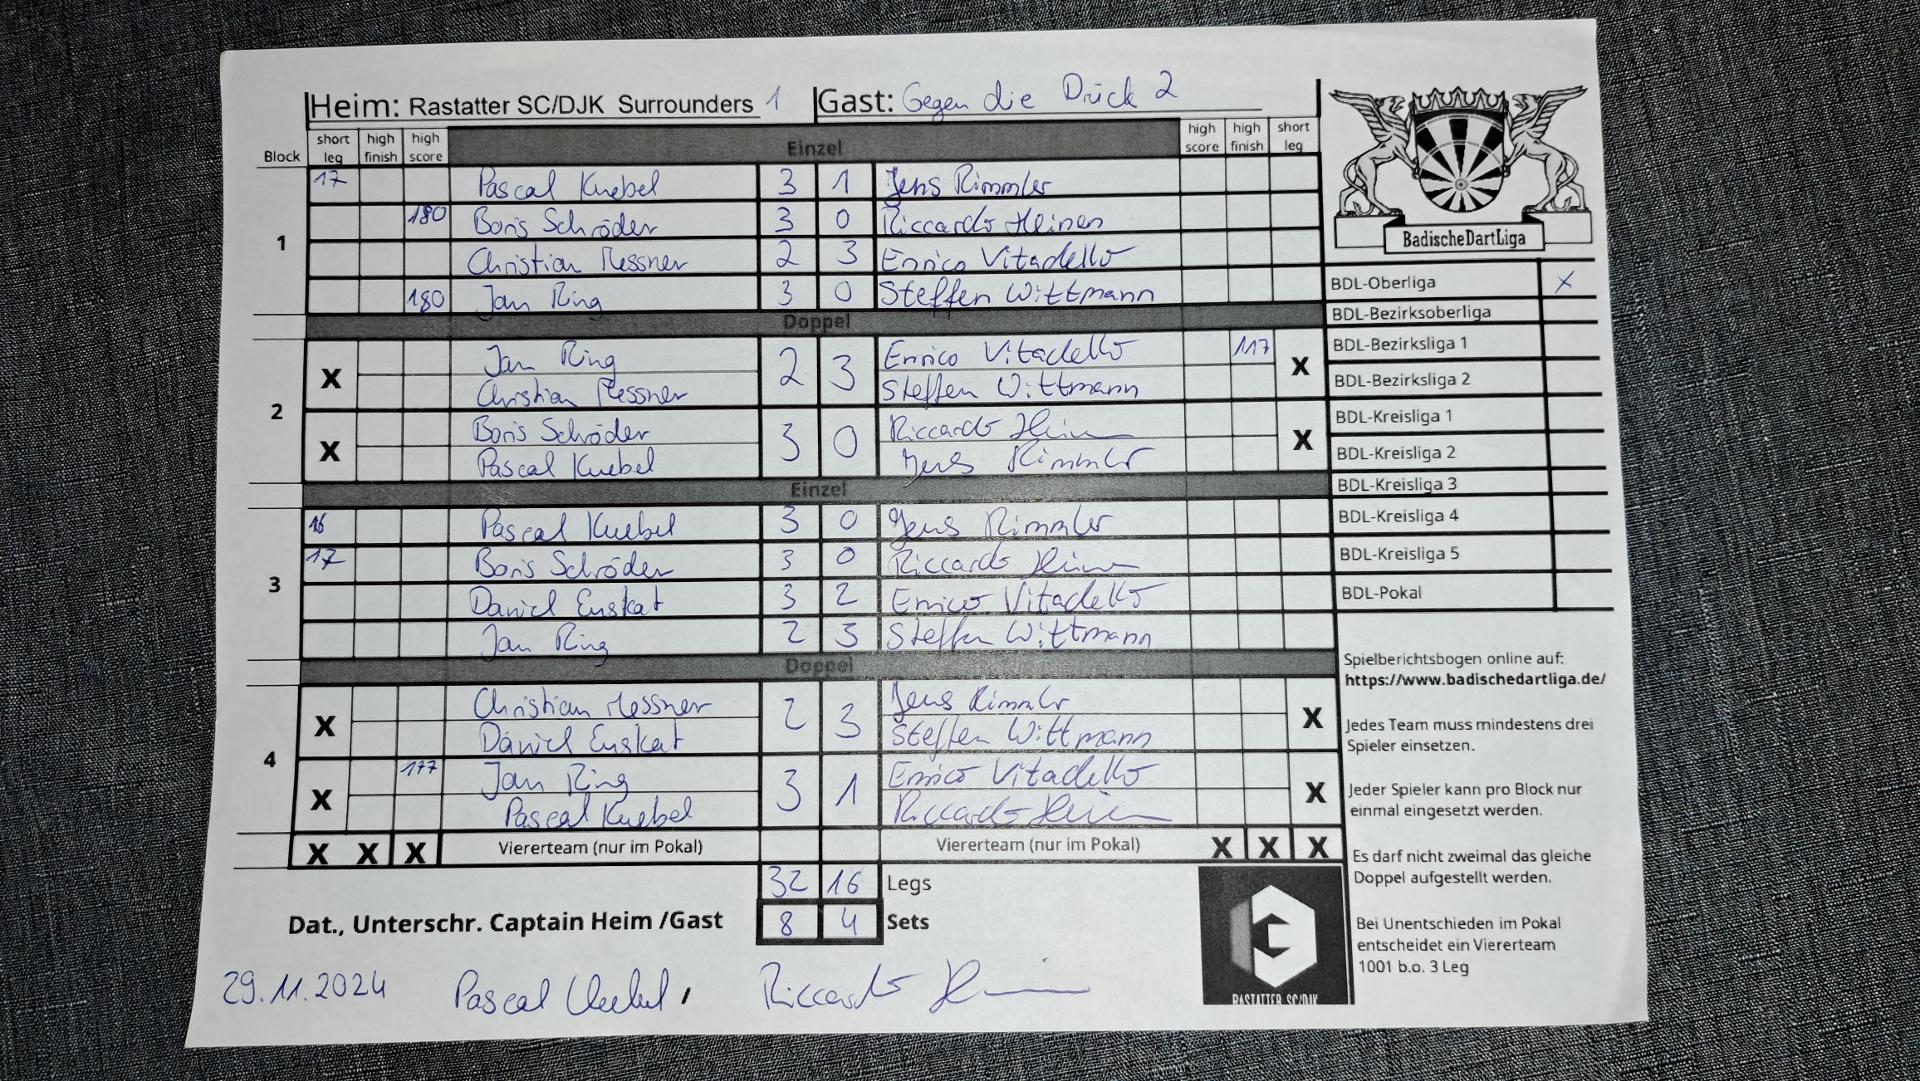 Heim: Rastatter SC/DJK Surrounders 1 Gast: Gegen die Drück 2
Block short leg high finish high score Einzel high score high finish short leg
1
17 Pascal Knebel 3 1 Jens Rimmler
180 Boris Schröder 3 0 Riccardo Heinen
Christian Messner 2 3 Enrico Vitadello
180 Jan Ring 3 0 Steffen Wittmann
Doppel
2
X Jan Ring 2 3 Enrico Vitadello 117 X
Christian Messner Steffen Wittmann
X Boris Schröder 3 0 Riccardo Heinen X
Pascal Knebel Jens Rimmler
Einzel
3
16 Pascal Knebel 3 0 Jens Rimmler
17 Boris Schröder 3 0 Riccardo Heinen
Daniel Enskat 3 2 Enrico Vitadello
Jan Ring 2 3 Steffen Wittmann
Doppel
4
X Christian Messner 2 3 Jens Rimmler X
Daniel Enskat Steffen Wittmann
X 177 Jan Ring 3 1 Enrico Vitadello X
Pascal Knebel Riccardo Heinen
X X X Viererteam (nur im Pokal) Viererteam (nur im Pokal) X X X
32 16 Legs
Dat., Unterschr. Captain Heim /Gast 8 4 Sets
29.11.2024 Pascal Knebel, Riccardo Heinen
BadischeDartLiga
BDL-Oberliga X
BDL-Bezirksoberliga
BDL-Bezirksliga 1
BDL-Bezirksliga 2
BDL-Kreisliga 1
BDL-Kreisliga 2
BDL-Kreisliga 3
BDL-Kreisliga 4
BDL-Kreisliga 5
BDL-Pokal
Spielberichtsbogen online auf:
https://www.badischedartliga.de/
Jedes Team muss mindestens drei
Spieler einsetzen.
Jeder Spieler kann pro Block nur
einmal eingesetzt werden.
Es darf nicht zweimal das gleiche
Doppel aufgestellt werden.
Bei Unentschieden im Pokal
entscheidet ein Viererteam
1001 b.o. 3 Leg
RASTATTER SC/DJK